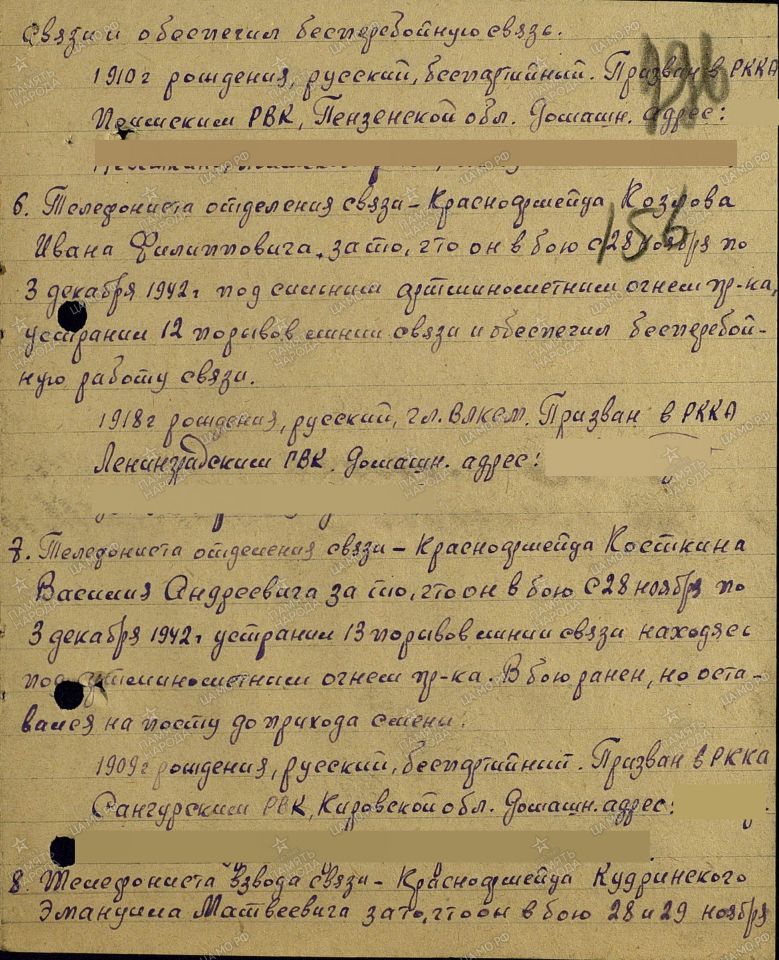 связи и обеспечил бесперебойную связь.
1910 г рождения, русский, беспартийный. Призван в РККА
РВК, Пензенской обл. Домашн. адрес:
6. Телефониста отделения связи – Красноармейца Козлова
Ивана Филипповича, за то, что он в бою с 28 ноября по
3 декабря 1942 г под сильным артминометным огнем пр-ка,
устранил 12 порывов линии связи и обеспечил бесперебой-
ную работу связи.
1918 г рождения, русский, чл. ВЛКСМ. Призван в РККА
Ленинградским РВК. Домашн. адрес:
7. Телефониста отделения связи – Красноармейца Косткина
Василия Андреевича за то, что он в бою с 28 ноября по
3 декабря 1942 г устранил 13 порывов линии связи находясь
под артминометным огнем пр-ка. В бою ранен, но оста-
вался на посту до прихода смены.
1909 г рождения, русский, беспартийный. Призван в РККА
РВК, Кировской обл. Домашн. адрес:
8. Телефониста взвода связи – Красноармейца Кудринского
Эмануила Матвеевича за то, что он в бою 28 и 29 ноября
156
ПАМЯТЬ НАРОДА
ЦАМО.РФ